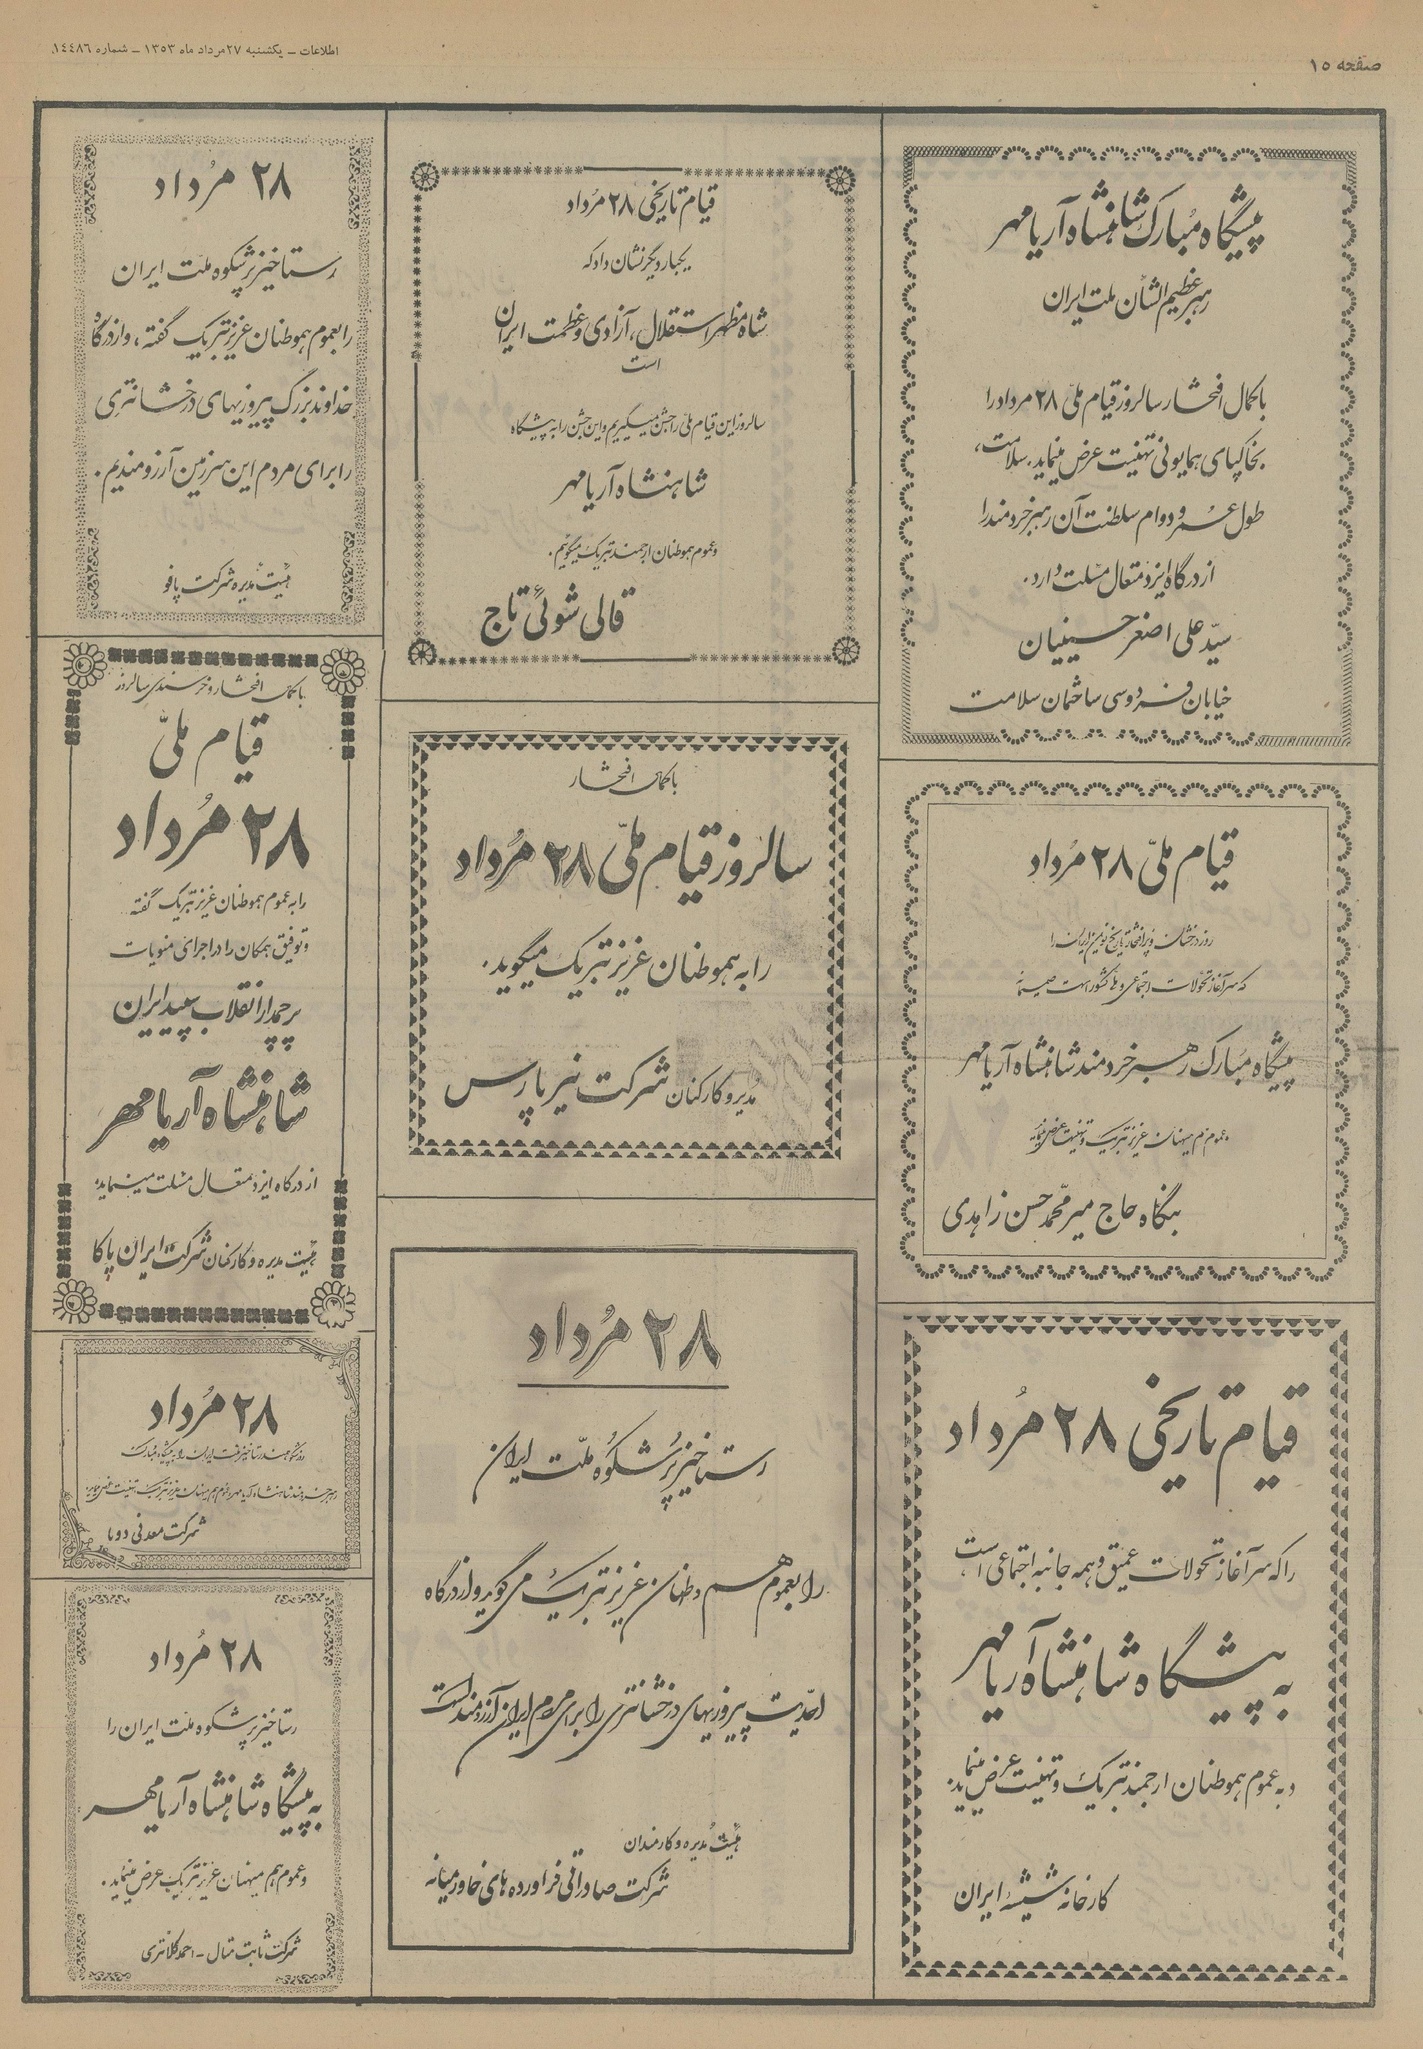 صفحه ۱۵
اطلاعات ــ یکشنبه ۲۷ مرداد ماه ۱۳۵۳ ــ شماره ۱۴۴۸۶
پیشگاه مبارک شاهنشاه آریامهر
رهبر عظیم الشأن ملت ایران
با کمال افتخار سالروز قیام ملی ۲۸ مرداد را
بخاکپای همایونی تهنیت عرض مینماید. سلامت،
طول عمر و دوام سلطنت آن رهبر خردمند را
از درگاه ایزد متعال مسئلت دارد.
سید علی اصغر حسینیان
خیابان فردوسی ساختمان سلامت
قیام ملی ۲۸ مرداد
روز درخشان و پرافتخار تاریخ نوین ایران را
که سرآغاز تحولات اجتماعی و ملی کشور است صمیمانه
پیشگاه مبارک رهبر خردمند شاهنشاه آریامهر
و عموم هم میهنان عزیز تبریک و تهنیت عرض مینماید
بنگاه حاج میر محمد حسن زاهدی
قیام تاریخی ۲۸ مرداد
را که سرآغاز تحولات عمیق و همه جانبه اجتماعی است
به پیشگاه شاهنشاه آریامهر
و به عموم هموطنان ارجمند تبریک و تهنیت عرض مینماید.
کارخانه شیشه ایران
قیام تاریخی ۲۸ مرداد
یکبار دیگر نشان داد که
شاه مظهر استقلال، آزادی و عظمت ایران
است
سالروز این قیام ملی را جشن میگیریم و این جشن را به پیشگاه
شاهنشاه آریامهر
و عموم هموطنان ارجمند تبریک میگوئیم.
قالی شوئی تاج
با کمال افتخار
سالروز قیام ملی ۲۸ مرداد
را به هموطنان عزیز تبریک میگوید.
مدیر و کارکنان شرکت نیرپارس
۲۸ مرداد
رستاخیز پرشکوه ملت ایران
را بعموم هم وطنان عزیز تبریک می گوید و از درگاه
احدیت پیروزیهای درخشانتری را برای مردم ایران آرزومند است
هیئت مدیره و کارمندان
شرکت صادراتی فرآورده های خاورمیانه
۲۸ مرداد
رستاخیز پرشکوه ملت ایران
را بعموم هموطنان عزیز تبریک گفته، و از درگاه
خداوند بزرگ پیروزیهای درخشانتری
را برای مردم این سرزمین آرزومندیم.
هیئت مدیره شرکت پافو
با کمال افتخار و خرسندی سالروز
قیام ملی
۲۸ مرداد
را به عموم هموطنان عزیز تبریک گفته
و توفیق همگان را در اجرای منویات
پرچمدار انقلاب سپید ایران
شاهنشاه آریامهر
از درگاه ایزد متعال مسئلت مینماید
هیئت مدیره و کارکنان شرکت ایران پاکا
۲۸ مرداد
شرکت معدنی دوبا
۲۸ مرداد
رستاخیز پرشکوه ملت ایران را
به پیشگاه شاهنشاه آریامهر
و عموم هم میهنان عزیز تبریک عرض مینماید.
شرکت ثابت متال - احمد کلانتری